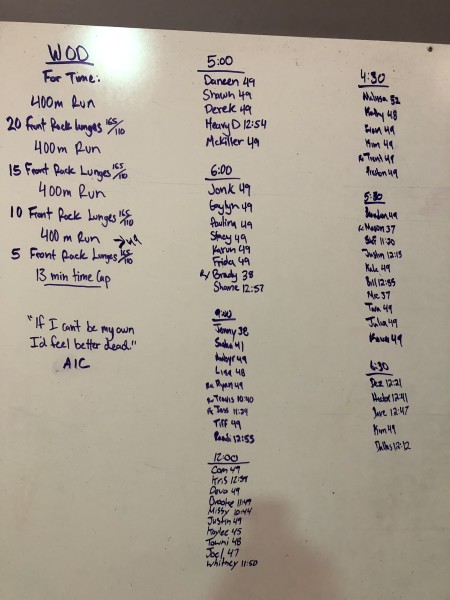 WOD
For Time:
400m Run
20 Front Rack Lunges 165/110
400m Run
15 Front Rack Lunges 165/110
400m Run
10 Front Rack Lunges 165/110
400 m Run
5 Front Rack Lunges 165/110
13 min time Cap
"If I can't be my own
I'd feel better dead."
AIC
5:00
Daneen 49
Shawn 49
Derek 49
Heavy D 12:54
McKiller 49
6:00
Jon K 49
Gaylyn 49
Paulina 49
Stacy 49
Karun 49
Frida 49
Rx Brady 38
Shane 12:57
9:00
Jenny 38
41
49
Lisa 48
Ryan 49
Travis 10:40
Jass 11:29
Tiff 49
12:55
12:00
Cam 49
Kris 12:59
Devo 49
Brooke 11:49
Missy 10:44
Justin 49
Kaylee 45
Tawni 48
Joel 47
Whitney 11:50
4:30
Melissa 52
48
49
Kim 49
Trent 49
Preston 49
5:30
Brandon 49
Mason 37
11:20
Justin 12:13
Kale 49
Bill 12:55
Mic 37
Tom 49
Julia 49
49
6:30
Dez 12:21
12:41
Jare 12:47
Kim 49
Dallas 12:12